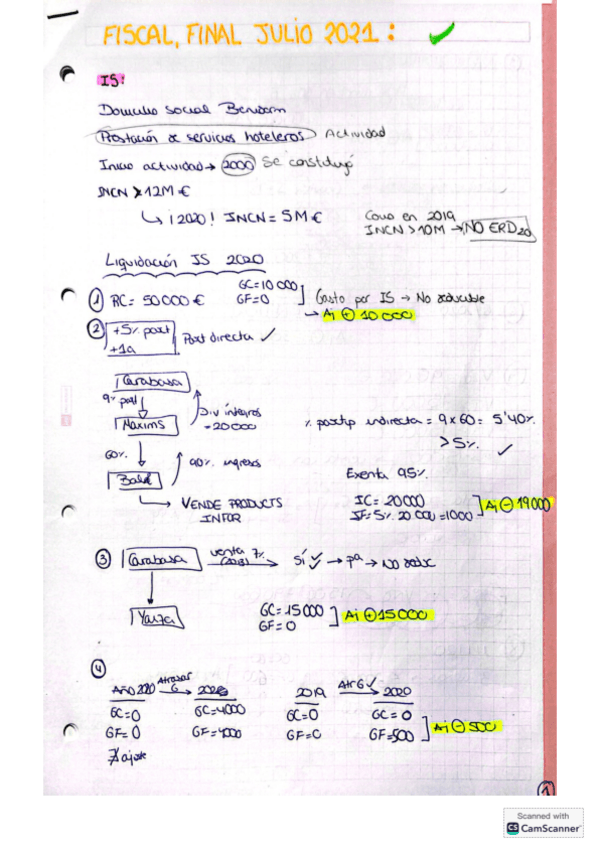 FISCAL, FINAL JULIO 2021:
IS:
Domicilio Social Benidorm
Prestación de servicios hoteleros Actividad
Inicio actividad → 2000 Se constituyó
INCN > 12M €
↳ ¡2020! INCN = 5M €
Como en 2019
INCN > 10M → NO ERD 20
Liquidación IS 2020
① RC = 50000 €
GC = 10 000
GF = 0
Gasto por IS → No deducible
→ Aj ⊕ 10000
② +5% part
+1a
Part directa ✓
Carabasa
9% part
Div íntegros
= 20000
Maxims
60%
90% ingresos
Bald
→ VENDE PRODUCTS
INFOR
% partip indirecta = 9 x 60 = 5'40%
> 5% ✓
Exenta 95%
IC = 20000
IF = 5% 20 000 = 1000
Aj ⊖ 19000
③ Carabasa
venta 7%
Sí ✓ → pª → NO deduc
Yaiza
GC = 15 000
GF = 0
Aj ⊕ 15000
④
AÑO 2020
Atrasar G
GC = 0
GC = 4000
GF = 0
GF = 4000
∄ ajuste
2019
Atr G ✓
2020
GC = 0
GC = 0
GF = 0
GF = 500
Aj ⊖ 500
1
Scanned with
CS CamScanner